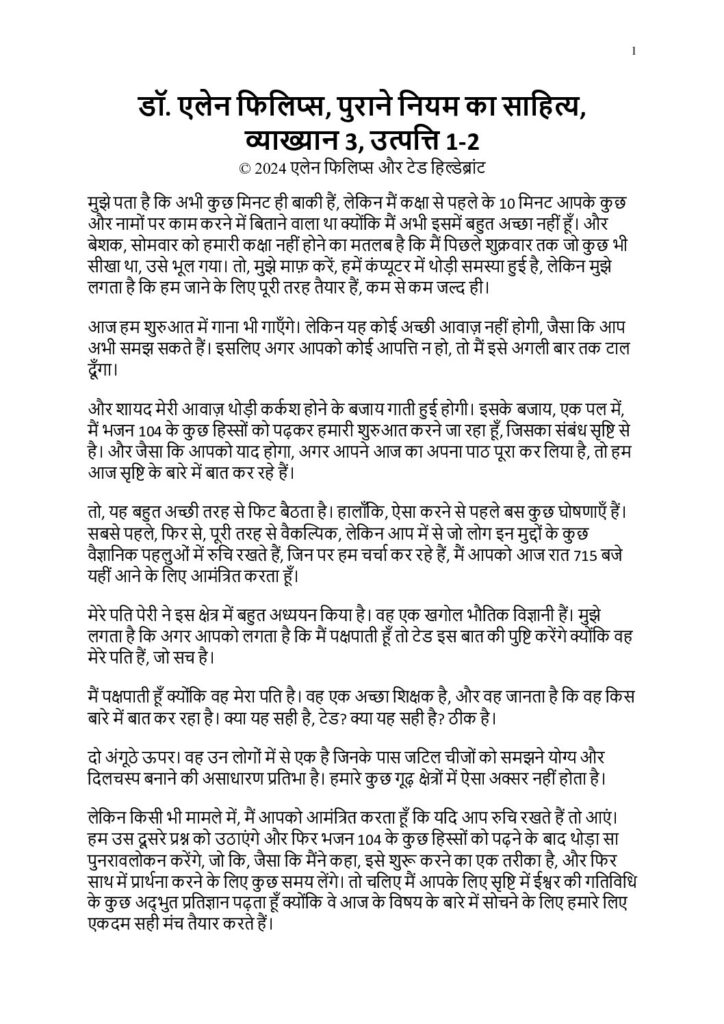 1
डॉ. एलेन फिलिप्स, पुराने नियम का साहित्य,
व्याख्यान 3, उत्पत्ति 1-2
© 2024 एलेन फिलिप्स और टेड हिल्डेब्रांट
मुझे पता है कि अभी कुछ मिनट ही बाकी हैं, लेकिन मैं कक्षा से पहले के 10 मिनट आपके कुछ
और नामों पर काम करने में बिताने वाला था क्योंकि मैं अभी इसमें बहुत अच्छा नहीं हूँ। और
बेशक, सोमवार को हमारी कक्षा नहीं होने का मतलब है कि मैं पिछले शुक्रवार तक जो कुछ भी
सीखा था, उसे भूल गया। तो, मुझे माफ़ करें, हमें कंप्यूटर में थोड़ी समस्या हुई है, लेकिन मुझे
लगता है कि हम जाने के लिए पूरी तरह तैयार हैं, कम से कम जल्द ही।
आज हम शुरुआत में गाना भी गाएँगे। लेकिन यह कोई अच्छी आवाज़ नहीं होगी, जैसा कि आप
अभी समझ सकते हैं। इसलिए अगर आपको कोई आपत्ति न हो, तो मैं इसे अगली बार तक टाल
दूँगा।
और शायद मेरी आवाज़ थोड़ी कर्कश होने के बजाय गाती हुई होगी। इसके बजाय, एक पल में,
मैं भजन 104 के कुछ हिस्सों को पढ़कर हमारी शुरुआत करने जा रहा हूँ, जिसका संबंध सृष्टि से
है। और जैसा कि आपको याद होगा, अगर आपने आज का अपना पाठ पूरा कर लिया है, तो हम
आज सृष्टि के बारे में बात कर रहे हैं।
तो, यह बहुत अच्छी तरह से फिट बैठता है। हालाँकि, ऐसा करने से पहले बस कुछ घोषणाएँ हैं।
सबसे पहले, फिर से, पूरी तरह से वैकल्पिक, लेकिन आप में से जो लोग इन मुद्दों के कुछ
वैज्ञानिक पहलुओं में रुचि रखते हैं, जिन पर हम चर्चा कर रहे हैं, मैं आपको आज रात 715 बजे
यहीं आने के लिए आमंत्रित करता हूँ।
मेरे पति पेरी ने इस क्षेत्र में बहुत अध्ययन किया है। वह एक खगोल भौतिक विज्ञानी हैं। मुझे
लगता है कि अगर आपको लगता है कि मैं पक्षपाती हूँ तो टेड इस बात की पुष्टि करेंगे क्योंकि वह
मेरे पति हैं, जो सच है।
मैं पक्षपाती हूँ क्योंकि वह मेरा पति है। वह एक अच्छा शिक्षक है, और वह जानता है कि वह किस
बारे में बात कर रहा है। क्या यह सही है, टेड? क्या यह सही है? ठीक है।
दो अंगूठे ऊपर। वह उन लोगों में से एक है जिनके पास जटिल चीजों को समझने योग्य और
दिलचस्प बनाने की असाधारण प्रतिभा है। हमारे कुछ गूढ़ क्षेत्रों में ऐसा अक्सर नहीं होता है।
लेकिन किसी भी मामले में, मैं आपको आमंत्रित करता हूँ कि यदि आप रुचि रखते हैं तो आएं।
हम उस दूसरे प्रश्न को उठाएंगे और फिर भजन 104 के कुछ हिस्सों को पढ़ने के बाद थोड़ा सा
पुनरावलोकन करेंगे, जो कि, जैसा कि मैंने कहा, इसे शुरू करने का एक तरीका है, और फिर
साथ में प्रार्थना करने के लिए कुछ समय लेंगे। तो चलिए मैं आपके लिए सृष्टि में ईश्वर की गतिविधि
के कुछ अद्भुत प्रतिज्ञान पढ़ता हूँ क्योंकि वे आज के विषय के बारे में सोचने के लिए हमारे लिए
एकदम सही मंच तैयार करते हैं।